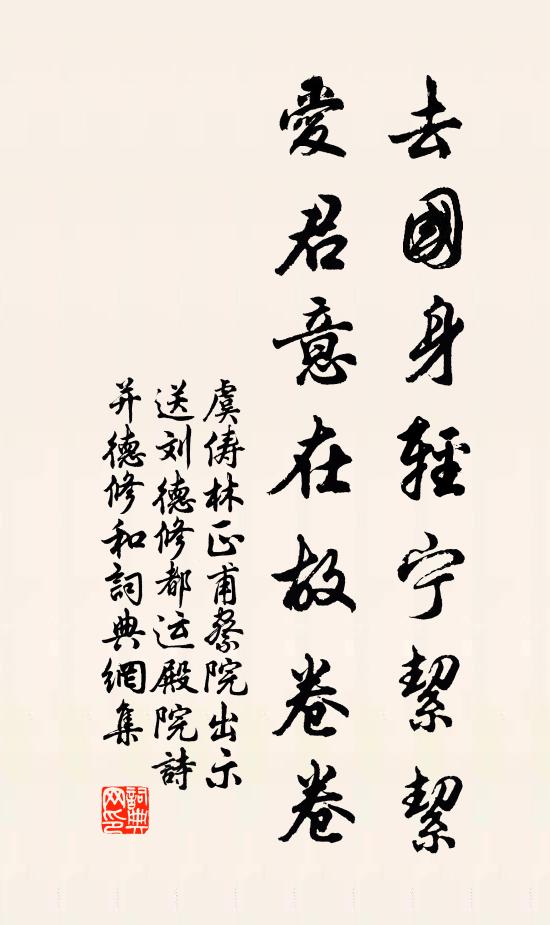 去國身輕宁絜絜
愛君意在故卷卷
虞俦林正甫察院出示
送刘德修都运殿院詩
并德修和詞典網集
詞典网印